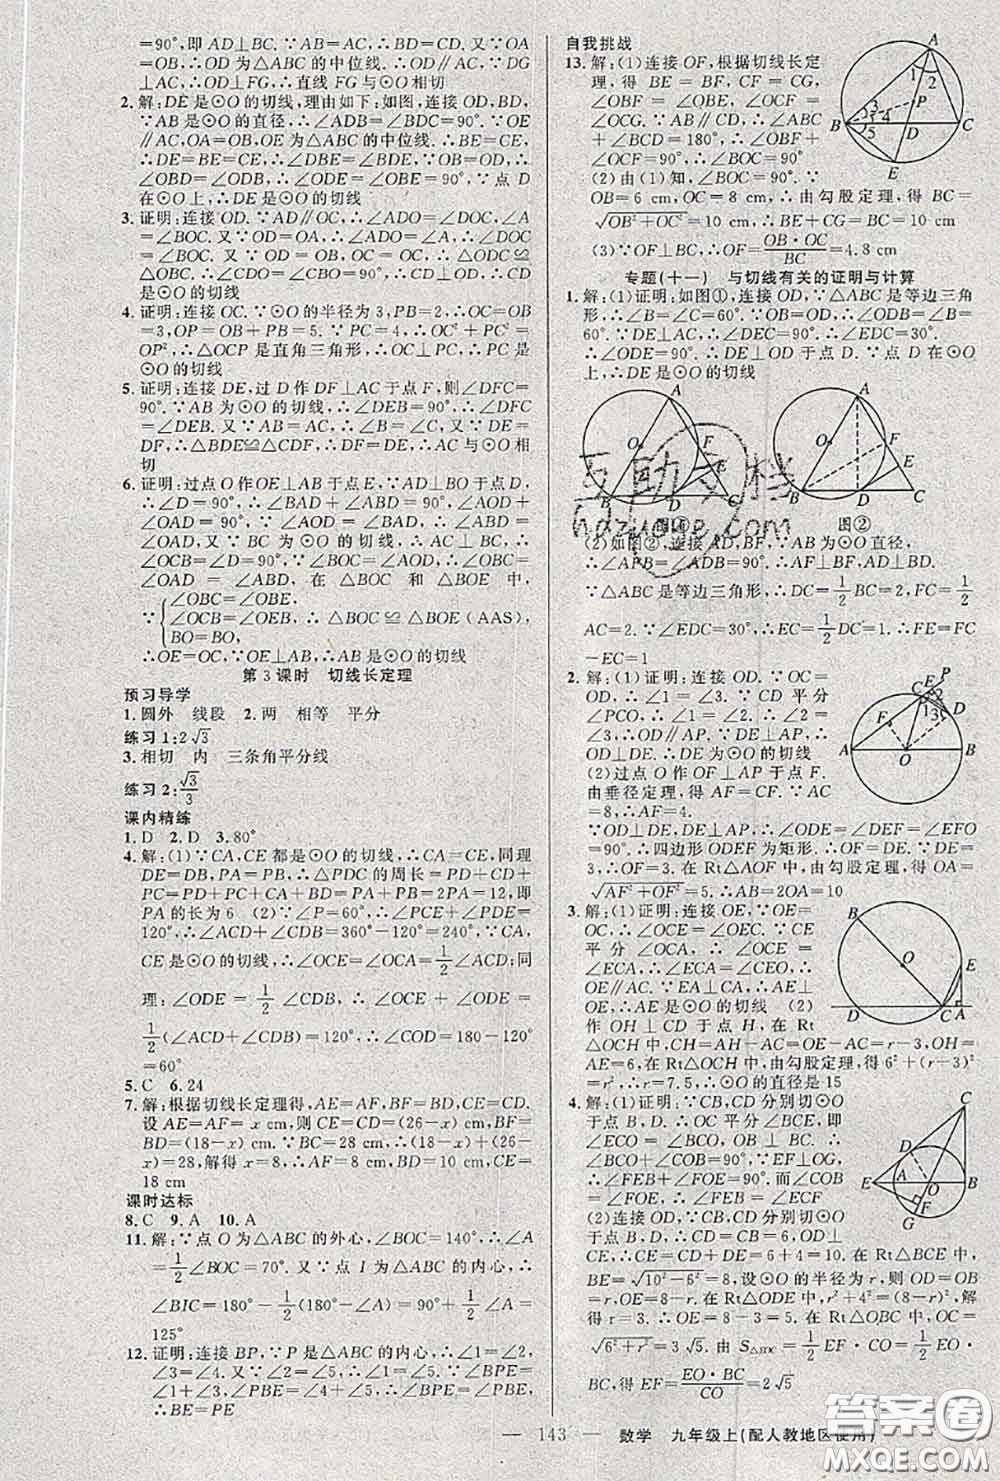 =90°,即AD⊥BC.∵AB=AC,∴BD=CD.又∵OA
=OB,∴OD为△ABC的中位线,∴OD∥AC.∵FG
⊥AC,∴OD⊥FG,∴直线FG与⊙O相切
2.解:DE是⊙O的切线,理由如下:如图,连接OD,BD,
∵AB是⊙O的直径,∴∠ADB=∠BDC=90°.∵OE
∥AC,OA=OB,∴OE为△ABC的中位线,∴BE=CE,
∴DE=BE=CE,∴∠DBE=∠BDE.又∵OB=OD,∴
∠OBD=∠ODB,∴∠ODE=∠OBE=90°,∵点D
在⊙O上,∴DE是⊙O的切线
3.证明:连接OD.∵AD∥OC,∴∠ADO=∠DOC,∠A
=∠BOC.又∵OD=OA,∴∠ADO=∠A,∴∠DOC=
∠BOC.又∵OD=OB,OC=OC,∴△ODC≌
△OBC,∴∠ODC=∠OBC.∵∠OBC=90°,∴∠ODC
=90°,∴DC是⊙O的切线
4.证明:连接OC.∵⊙O的半径为3,PB=2,∴OC=OB
=3,OP=OB+PB=5.∵PC=4,∴OC²+PC²=
OP²,∴△OCP是直角三角形,∴OC⊥PC,∴PC是
⊙O的切线
5.证明:连接DE,过D作DF⊥AC于点F,则∠DFC=
90°.∵AB为⊙O的切线,∴∠DEB=90°,∴∠DFC
=∠DEB.又∵AB=AC,∴∠B=∠C.又∵BD=
CD,∴△BDE≌△CDF,∴DF=DE,∴AC与⊙O相
切
6.证明:过点O作OE⊥AB于点E.∵AD⊥BO于点D,∴
∠D=90°,∴∠BAD+∠ABD=90°,∠AOD+
∠OAD=90°.∵∠AOD=∠BAD,∴∠ABD=
∠OAD.又∵BC为⊙O的切线,∴AC⊥BC,∴
∠BCO=∠D=90°.∵∠BOC=∠AOD,∴∠OBC=
∠OAD=∠ABD,在△BOC和△BOE中,
∵{∠OBC=∠OBE,
∠OCB=∠OEB,∴△BOC≌△BOE(AAS),
BO=BO,
∴OE=OC,∵OE⊥AB,∴AB是⊙O的切线
第3课时 切线长定理
预习导学
1.圆外 线段 2.两 相等 平分
练习1:2√3
3.相切 内 三条角平分线
练习2:√3/3
课内精练
1.D 2.D 3.80°
4.解:(1)∵CA,CE都是⊙O的切线,∴CA=CE,同理
DE=DB,PA=PB,∴△PDC的周长=PD+CD+
PC=PD+PC+CA+BD=PA+PB=2PA=12,即
PA的长为6 (2)∵∠P=60°,∴∠PCE+∠PDE=
120°,∴∠ACD+∠CDB=360°-120°=240°.∵CA,
CE是⊙O的切线,∴∠OCE=∠OCA=1/2∠ACD;同
理:∠ODE=1/2∠CDB,∴∠OCE+∠ODE=
1/2(∠ACD+∠CDB)=120°,∴∠COD=180°-120°
=60°
5.C 6.24
7.解:根据切线长定理得,AE=AF,BF=BD,CE=CD.
设AE=AF=x cm,则CE=CD=(26-x)cm,BF=
BD=(18-x)cm.∵BC=28 cm,∴(18-x)+(26-
x)=28,解得x=8,∴AF=8 cm,BD=10 cm,CE=
18 cm
课时达标
8.C 9.A 10.A
11.解:∵点O为△ABC的外心,∠BOC=140°,∴∠A
=1/2∠BOC=70°.又∵点I为△ABC的内心,∴
∠BIC=180°-1/2(180°-∠A)=90°+1/2∠A=
125°
12.证明:连接BP,∵P是△ABC的内心,∴∠1=∠2,
∠3=∠4.又∵∠2=∠5,∴∠1=∠5.∵∠BPE=
∠1+∠3,∠PBE=∠4+∠5,∴∠BPE=∠PBE,
∴PE=BE
自我挑战
13.解:(1)连接OF,根据切线长定
理,得BE=BF,CF=CG,
∠OBF=∠OBE,∠OCF=
∠OCG.∵AB∥CD,∴∠ABC
+∠BCD=180°,∴∠OBF+
∠OCF=90°,∴∠BOC=90°
(2)由(1)知,∠BOC=90°.∵
OB=6 cm,OC=8 cm,∴由勾股定理,得BC=
√OB²+OC²=10 cm,∴BE+CG=BC=10 cm
(3)∵OF⊥BC,∴OF=OB·OC/BC=4.8 cm
专题(十一) 与切线有关的证明与计算
1.解:(1)证明:如图①,连接OD,∵△ABC是等边三角
形,∴∠B=∠C=60°.∵OB=OD,∴∠ODB=∠B=
60°.∵DE⊥AC,∴∠DEC=90°,∴∠EDC=30°,
∴∠ODE=90°,∴DE⊥OD于点D.∵点D在⊙O
上,∴DE是⊙O的切线
图②
(2)如图②,连接AD,BF,∵AB为⊙O直径,
∴∠AFB=∠ADB=90°,∴AF⊥BF,AD⊥BD.
∵△ABC是等边三角形,∴DC=1/2BC=2,FC=1/2
AC=2.∵∠EDC=30°,∴EC=1/2DC=1,∴FE=FC
-EC=1
2.解:(1)证明:连接OC.∵OA=
OC,∴∠1=∠3.∵CD平分
∠PCO,∴∠1=∠2,∴∠2=
∠3.∵DE⊥AP,∴OD⊥
DE,∴DE为⊙O的切线
(2)过点O作OF⊥AP于点F,
由垂径定理,得AF=CF.∵AC
=8,∴AF=4.
∵OD⊥DE,DE⊥AP,∴∠ODE=∠DEF=∠EFO
=90°,∴四边形ODEF为矩形,∴OF=DE.∵DE=
3,∴OF=3.在Rt△AOF中,由勾股定理,得OA=
√AF²+OF²=5.∴AB=2OA=10
3.解:(1)证明:连接OE,∵OE=
OC,∴∠OCE=∠OEC.∵CE
平分∠OCA,∴∠OCE=
∠ECA,∴∠ECA=∠CEO,∴
OE∥AC.∵EA⊥CA,∴AE⊥OE,
∴AE是⊙O的切线 (2)
作OH⊥CD于点H,在Rt
△OCH中,CH=AH-AC=OE-AC=r-3,OH=
AE=6,在Rt△OCH中,由勾股定理,得6²+(r-3)²
=r²,∴r=7.5,∴⊙O的直径是15
4.解:(1)证明:∵CB,CD分别切⊙O于
点B,D.∴OC平分∠BCE,即
∠ECO=∠BCO,OB⊥BC.∴
∠BCO+∠COB=90°.∵EF⊥OG,
∴∠FEO+∠FOE=90°.而∠COB
=∠FOE,∴∠FEO=∠ECF
(2)连接OD,∵CB,CD分别切⊙O于点B,D,
∴OD⊥CE,CD=CB=6.在Rt△BCE中,
BE=√10²-6²=8,设⊙O的半径为r,则OD=OB=
r,OE=8-r,在Rt△ODE中,r²+4²=(8-r)²,解
得r=3,∴OE=8-3=5.在Rt△OBC中,OC=
√6²+r²=3√5.由S△EOC=1/2EF·CO=1/2EO·
BC,得EF=EO·BC/CO=2√5
互助文档
hdzuoge.com
— 143 — 数学 九年级上(配人教地区使用)
答案圈
MXQE.COM